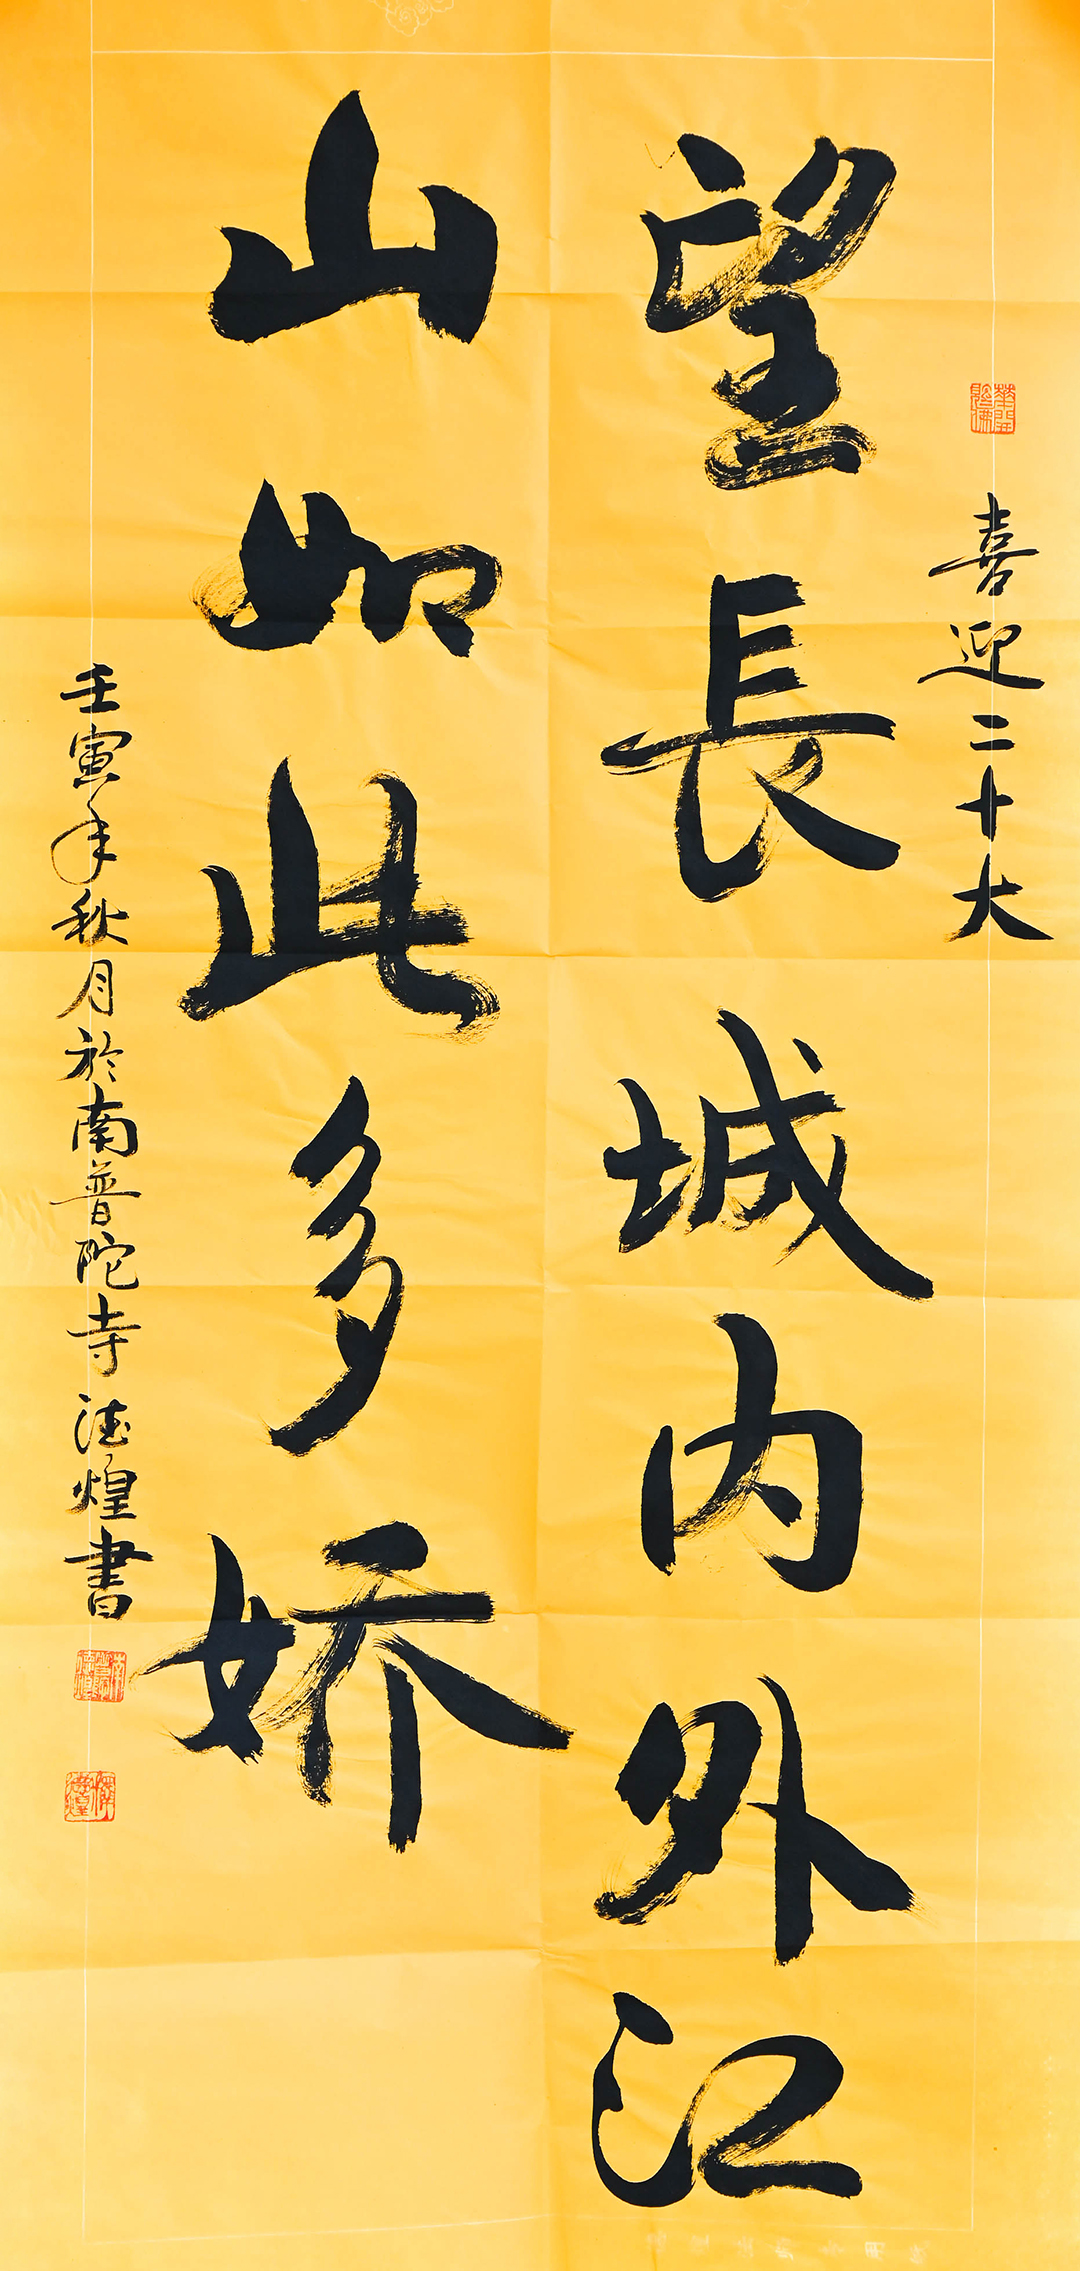 喜迎二十大
望長城内外江
山如此多娇
壬寅年秋月於南普陀寺法煌書